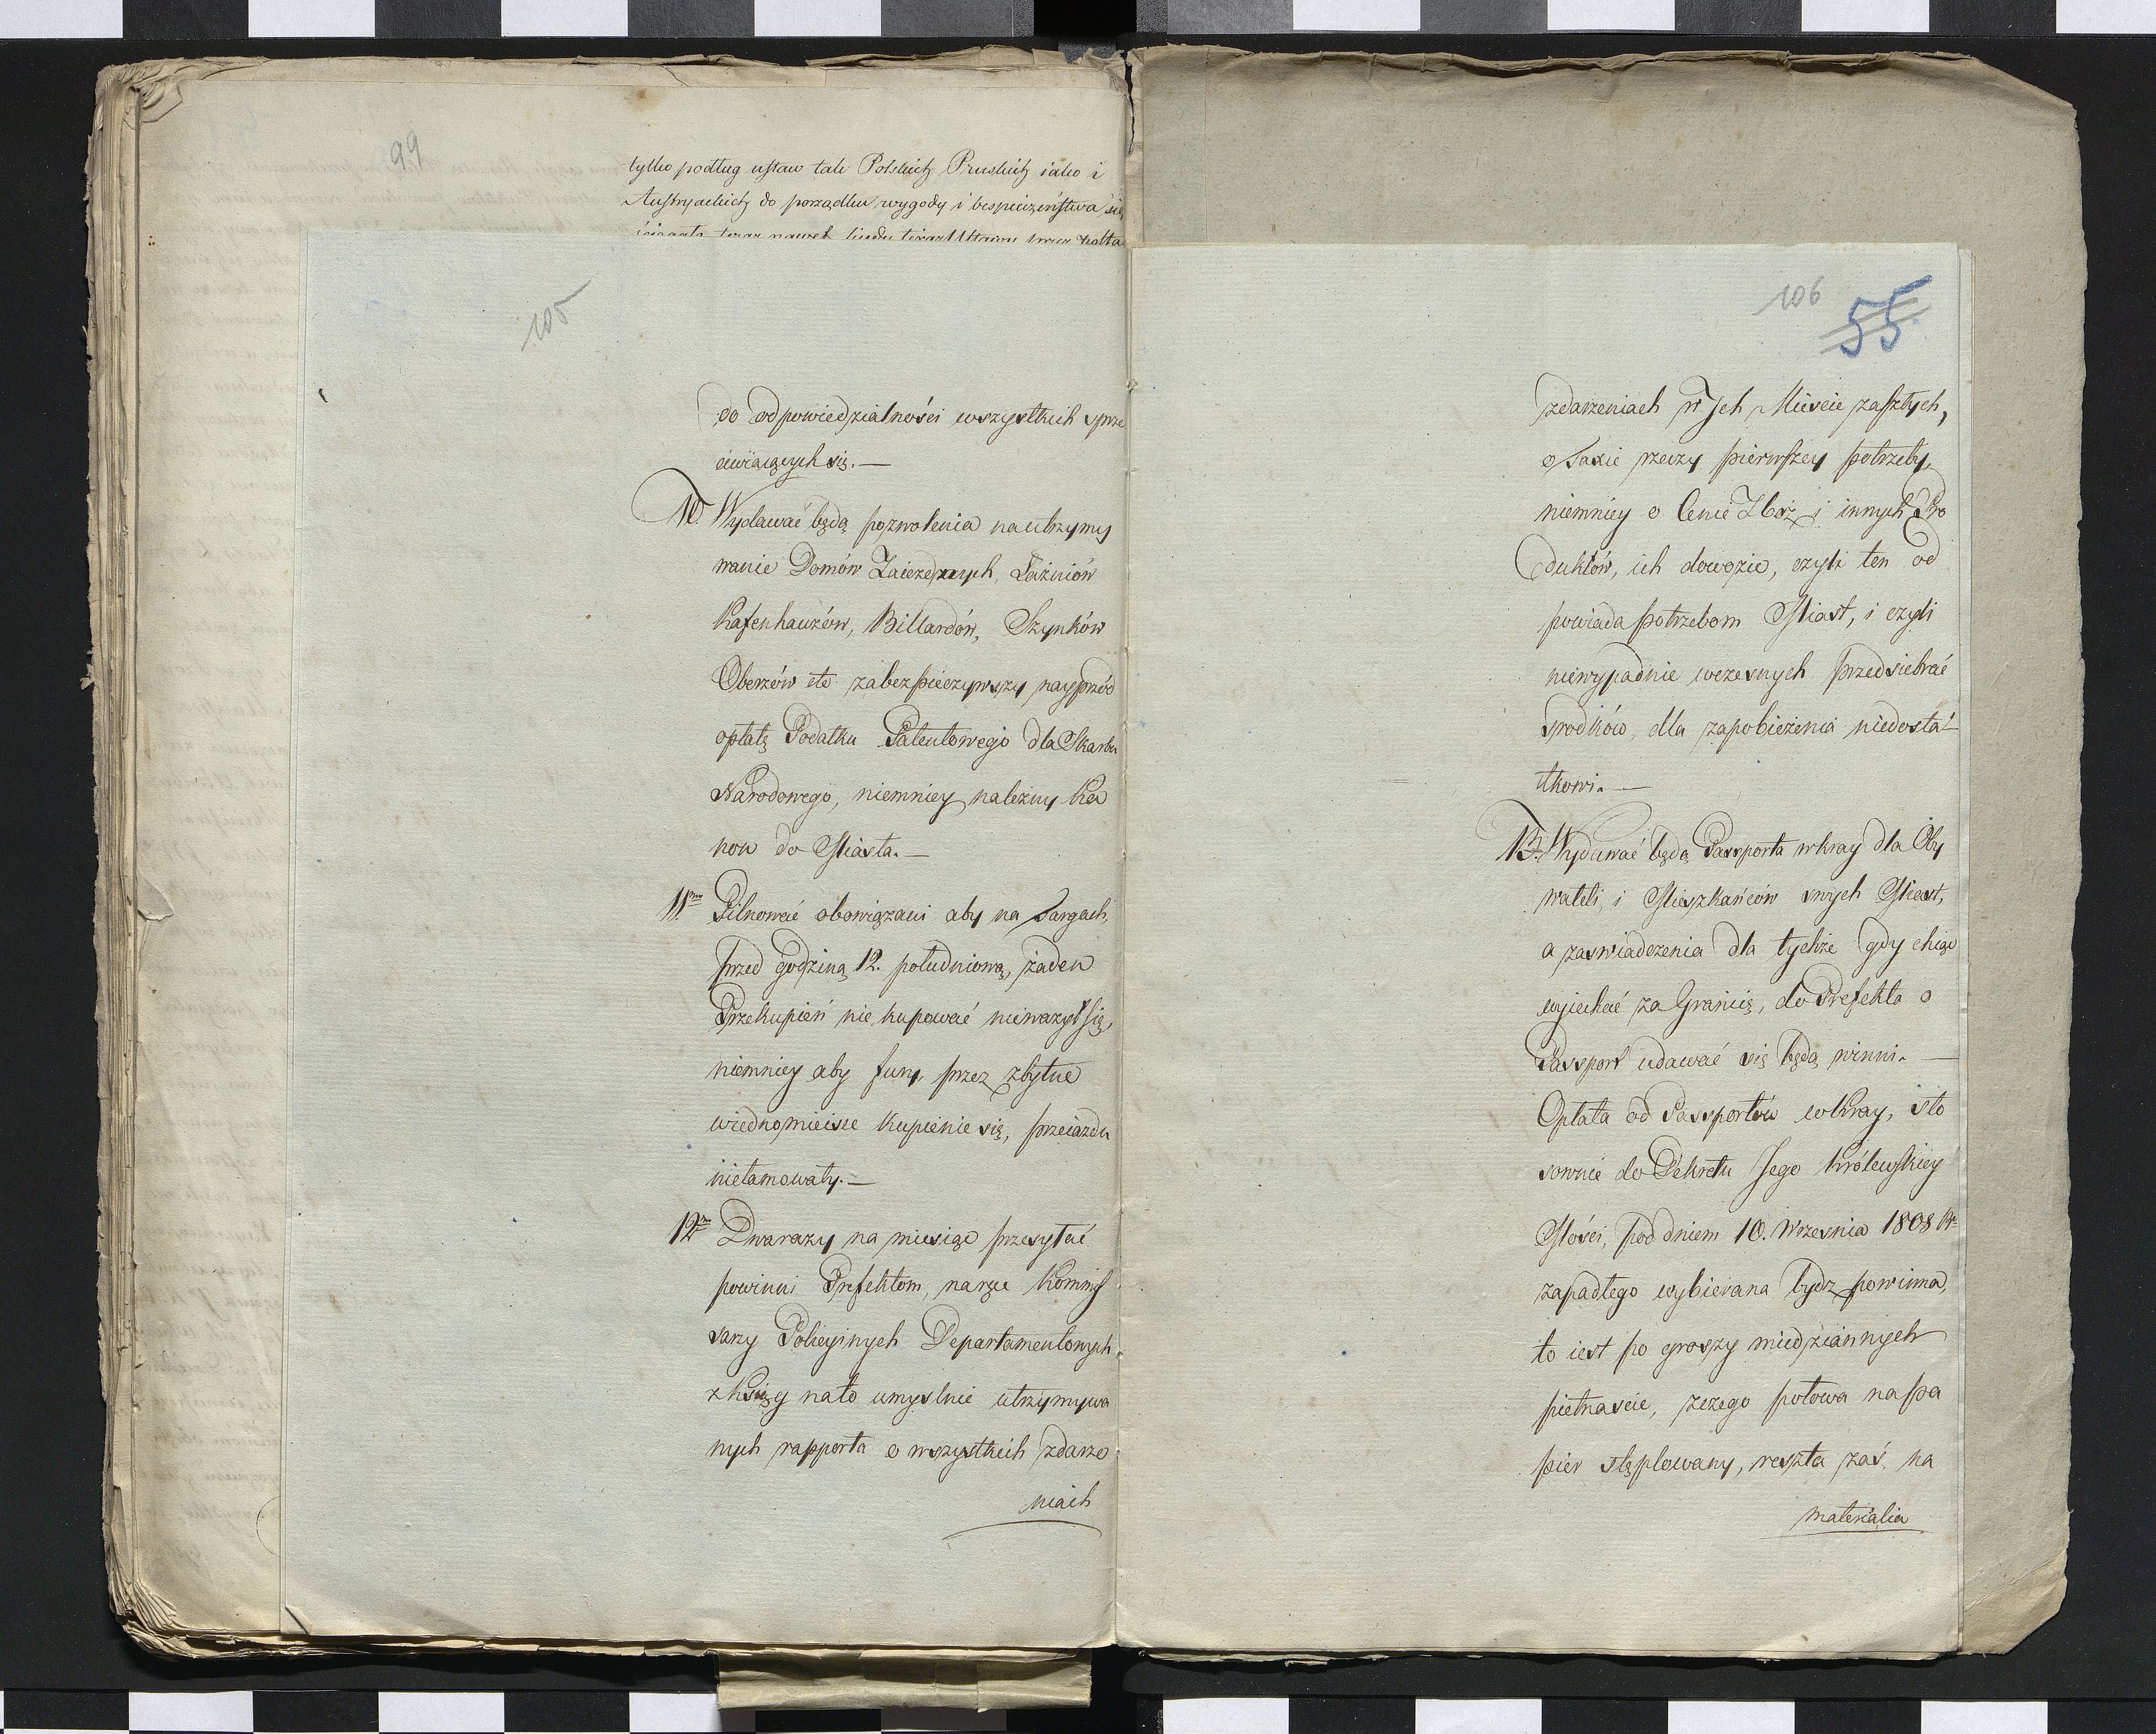 99
tylko podług ustaw tak Polskich Pruskich iako i
Austryackich do porządku, wygody i bespieczeństwa się
105
do odpowiedzialności wszystkich sprze
ciwiaiących się. —
10. Wydawać będą pozwolenia na utrzymy
wanie Domów Zaiezdnych, Łaźniów
Kafenhauzów, Billardów, Szynków
Oberzów etc zabezpieczywszy nayprzód
opłatę Podatku Patentowego dla Skarbu
Narodowego, niemniey należny Ka
non do Miasta. —
11mo Pilnować obowiązani aby na Targach,
przed godziną 12. południową, żaden
Przekupień nie kupować nieważył się,
niemniey aby fury przez zbytne
wiedno mieisce kupienie się, przeiazdu
nietamowały. —
12mo Dwa razy na miesiąc przesyłać
powinni Prefektom, na ręce Kommis
sarzy Policyinych Departamentowych
z Książg na to umyslnie utrzymywa
nych rapporta o wszystkich zdarze
niach
106
55
zdarzeniach w Jch Mieście zaszłych,
o Taxie rzeczy pierwszey potrzeby,
niemniey o Cenie Zbóż i innych Pro
duktów, ich dowozie, czyli ten od
powiada potrzebom Miast, i czyli
niewypadnie wczesnych przedsiebrać
srodków dla zapobieżenia niedosta-
tkowi. —
13. Wydawać będą Passporta w kray dla Oby
wateli, i Mieszkańców swych Miast,
a zaswiadczenia dla tychże gdy chcąc
wyiechać za Granicę, do Prefekta o
Passport udawać się będą winni. —
Opłata od Passportów w Kray, sto
sownie do Dekretu Jego Królewskiey
Mości, pod dniem 10. Wrzesnia 1808 Rr
zapadłego wybierana bydz powinna,
to iest po groszy miedziannych
pietnascie, z czego połowa na pa
pier stęplowany, reszta zaś na
materialia